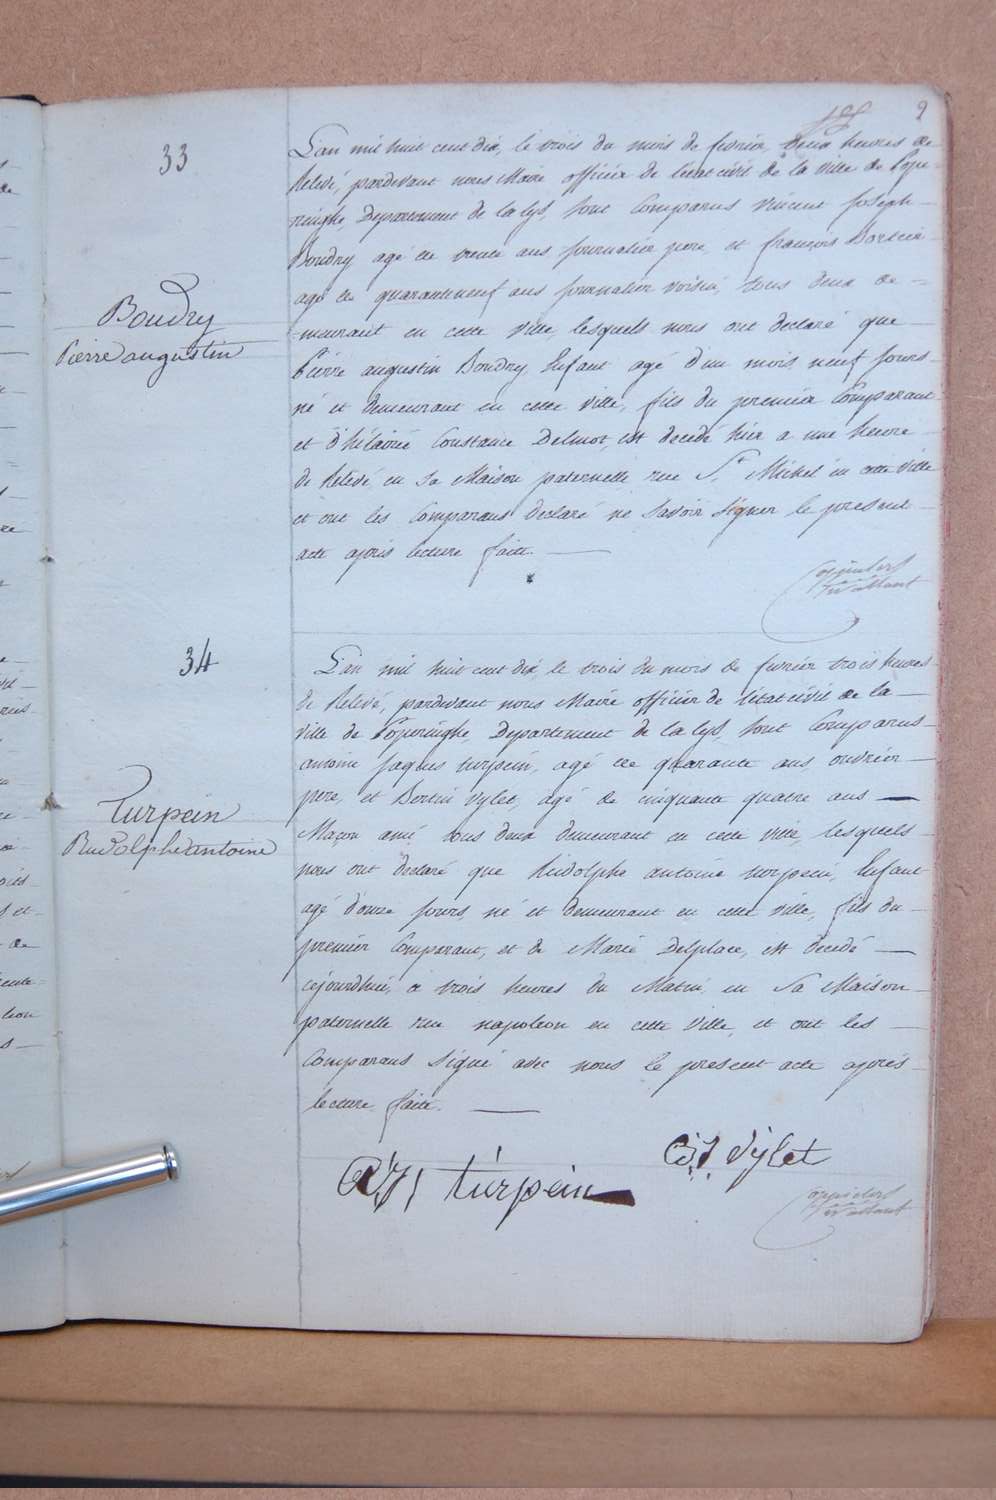 9
33
Boudry
Pierre augustin
L'an mil huit cent dix, le trois du mois de fevrier, deux heures de
Relevé, pardevant nous Maire officier de l'etat civil de la ville de Pope-
ringhe, Departement de la lys, sont Comparus vincent Joseph
Boudry agé de trente ans journalier pere, et françois
agé de quaranteneuf ans journalier voisin, tous deux de-
meurant en cette ville, lesquels nous ont declaré que
Pierre augustin Boudry Enfant agé d'un mois, neuf jours
né et demeurant en cette ville, fils du premier Comparant
et d'hélairie Constance Delmot, est decedé hier a une heure
de Relevé, en sa Maison paternelle rue St Michel en cette ville
et ont les Comparans declaré ne savoir signer le present
acte après lecture faite.
34
Turpein
Rudolphe antoine
L'an mil huit cent dix, le trois du mois de fevrier trois heures
de Relevé, pardevant nous Maire officier de l'etat civil de la
ville de Poperinghe, Departement de la lys, sont Comparus
antoine jaques turpein, agé de quarante ans, ouvrier
pere, et Bertin vylet, agé de cinquante quatre ans
Maçon ami, tous deux demeurant en cette ville, lesquels
nous ont declaré que Rudolphe antoine turpein, Enfant
agé d'onze jours, né et demeurant en cette ville, fils du
premier Comparant, et de Marie Delplace, est decedé
cejourdhui, a trois heures du Matin, en sa Maison
paternelle rue napoleon en cette ville, et ont les
Comparans signé avec nous le present acte après
lecture faite.
turpein
vylet